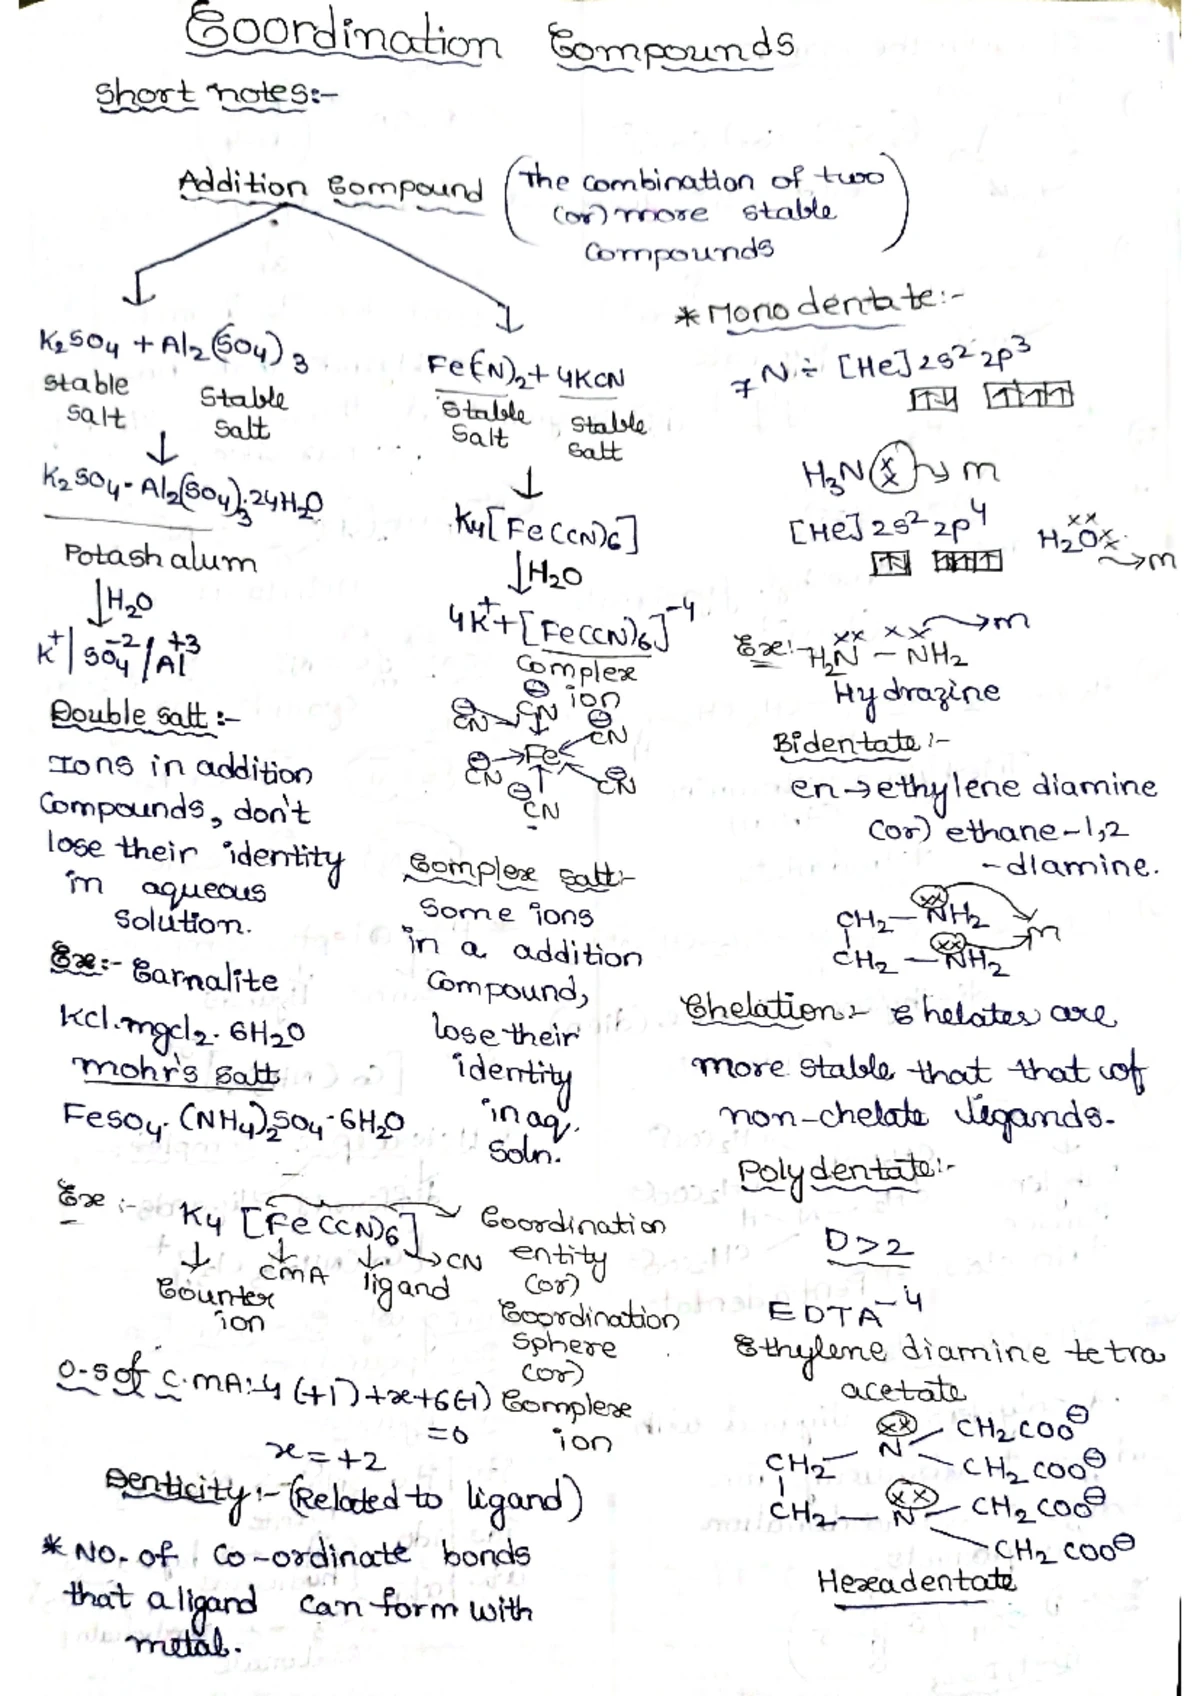 Coordination Compounds
Short notes:-
Addition Compound (The combination of two
(or) more stable
Compounds)
K2SO4 + Al2(SO4)3
stable Stable
salt Salt
↓
K2SO4·Al2(SO4)3·24H2O
Potash alum
↓H2O
K+ | SO4-2 / Al+3
Double salt :-
Ions in addition
Compounds, don't
lose their identity
in aqueous
solution.
Ex:- Carnalite
KCl.mgcl2.6H2O
mohr's salt
FeSO4·(NH4)2SO4·6H2O
Fe(CN)2 + 4KCN
Stable Stable
Salt Salt
↓
K4[Fe(CN)6]
↓H2O
4K+ + [Fe(CN)6]-4
Complex
ion
CN⊖ CN⊖ CN⊖
CN⊖ → Fe CN⊖
CN⊖
Complex salt:-
Some ions
in a addition
Compound,
lose their
identity
in aq.
Soln.
Ex :- K4 [Fe(CN)6]
↓ ↓ ↓ → CN
Counter CMA ligand
ion
Coordination
entity
(or)
Coordination
Sphere
(or)
Complex
ion
O.S of C.MA:- 4(+1)+x+6(-1)
=0
x = +2
Denticity :- (Related to ligand)
* No. of Co-ordinate bonds
that a ligand can form with
metal.
* Mono dentate:-
7N ÷ [He] 2s2 2p3
H3N ×× → m
[He] 2s2 2p4 H2O ×× ×× → m
Ex:- H2N - NH2 → m
Hydrazine
Bidentate :-
en → ethylene diamine
(or) ethane-1,2
-diamine.
CH2 — NH2
| m
CH2 — NH2
Chelation:- Chelates are
more stable that that of
non-chelate ligands.
Polydentate:-
D > 2
EDTA-4
Ethylene diamine tetra
acetate
CH2 — N — CH2COO⊖
— CH2COO⊖
|
CH2 — N — CH2COO⊖
— CH2COO⊖
Hexadentate